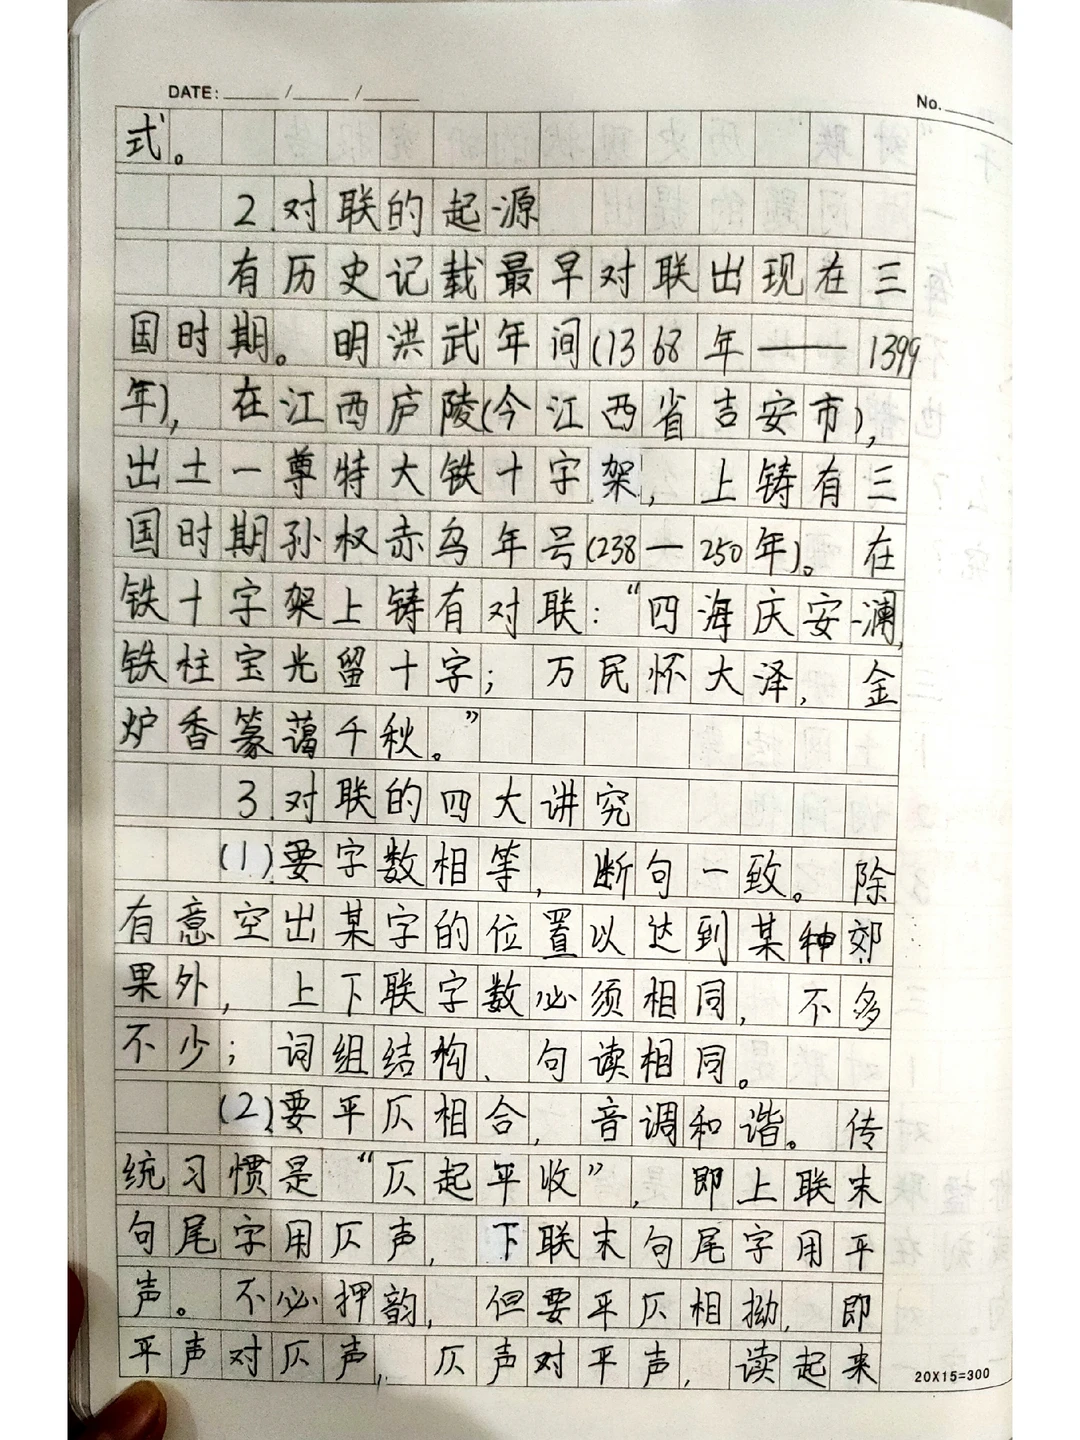 DATE: ____ /____ /____
No.
式。
2.对联的起源
有历史记载最早对联出现在三
国时期。明洪武年间(1368年——1399
年),在江西庐陵(今江西省吉安市),
出土一尊特大铁十字架,上铸有三
国时期孙权赤乌年号(238—250年)。在
铁十字架上铸有对联:“四海庆安澜,
铁柱宝光留十字;万民怀大泽,金
炉香篆蔼千秋。”
3.对联的四大讲究
(1).要字数相等,断句一致。除
有意空出某字的位置以达到某种郊
果外,上下联字数必须相同,不多
不少;词组结构、句读相同。
(2).要平仄相合,音调和谐。传
统习惯是“仄起平收”,即上联末
句尾字用仄声,下联末句尾字用平
声。不必押韵,但要平仄相拗,即
平声对仄声,仄声对平声,读起来
20X15=300